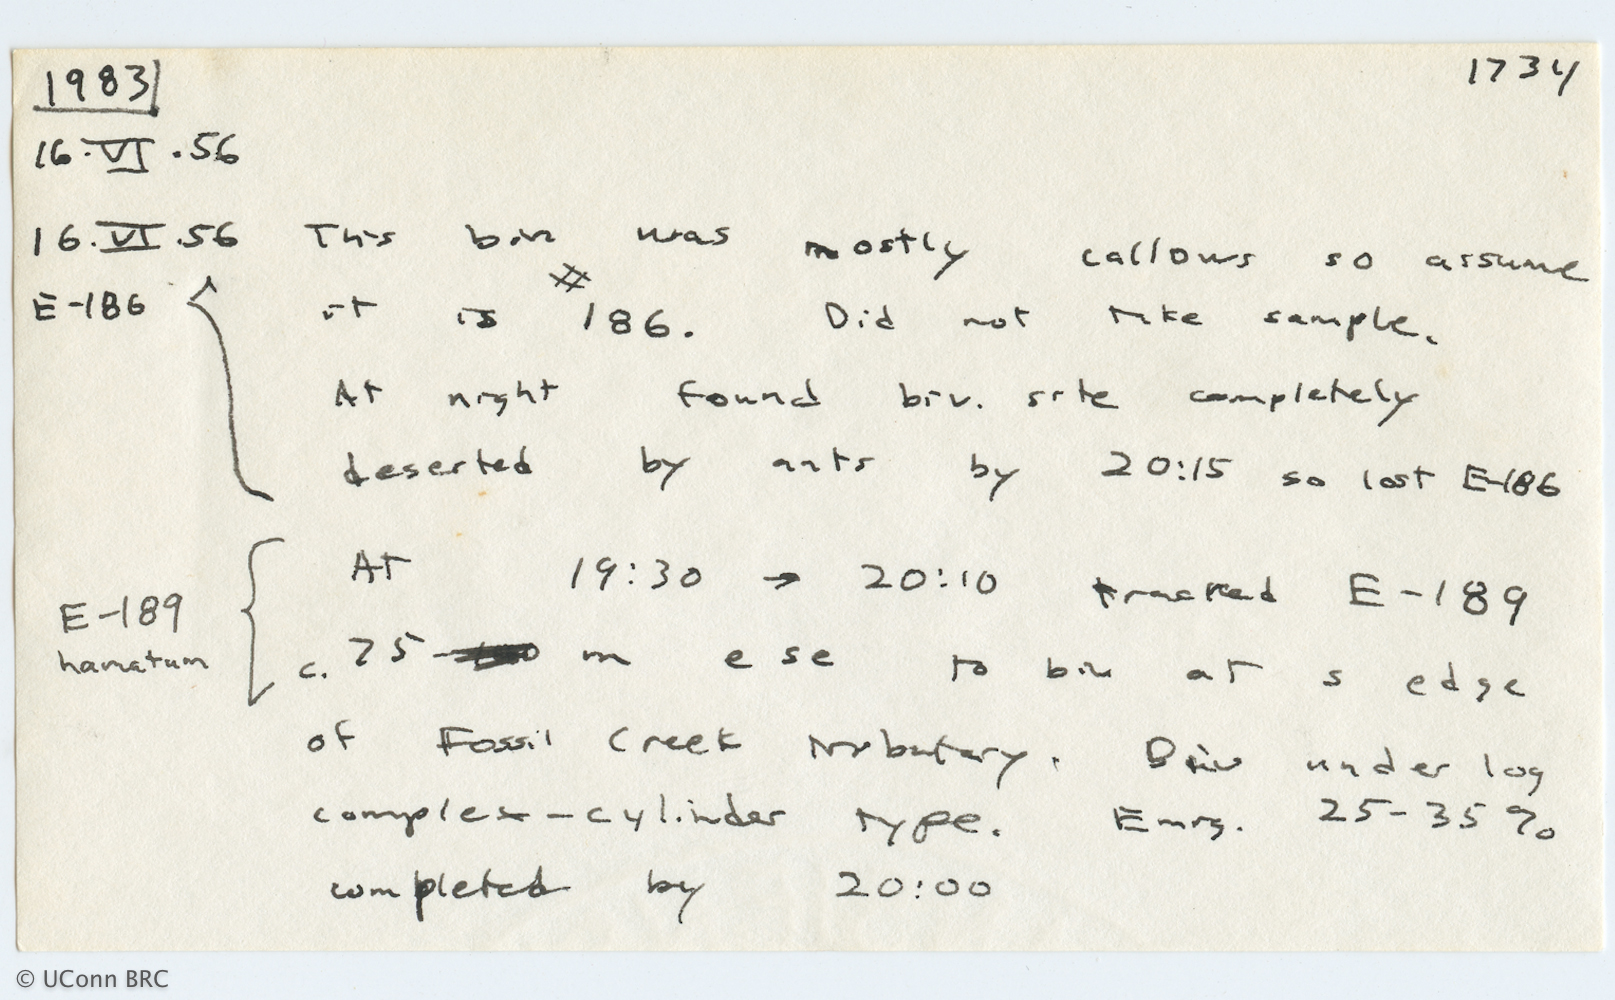 1983 1734
16.VI.56
16.VI.56 This biv was mostly callows so assume
E-186 it is #186. Did not take sample.
At night found biv. site completely
deserted by ants by 20:15 so lost E-186
At 19:30 → 20:10 tracked E-189
E-189
hamatum c. 75 m ese to biv at s edge
of Fossil Creek tributary. Biv under log
complex-cylinder type. Emrg. 25-35%
completed by 20:00
© UConn BRC